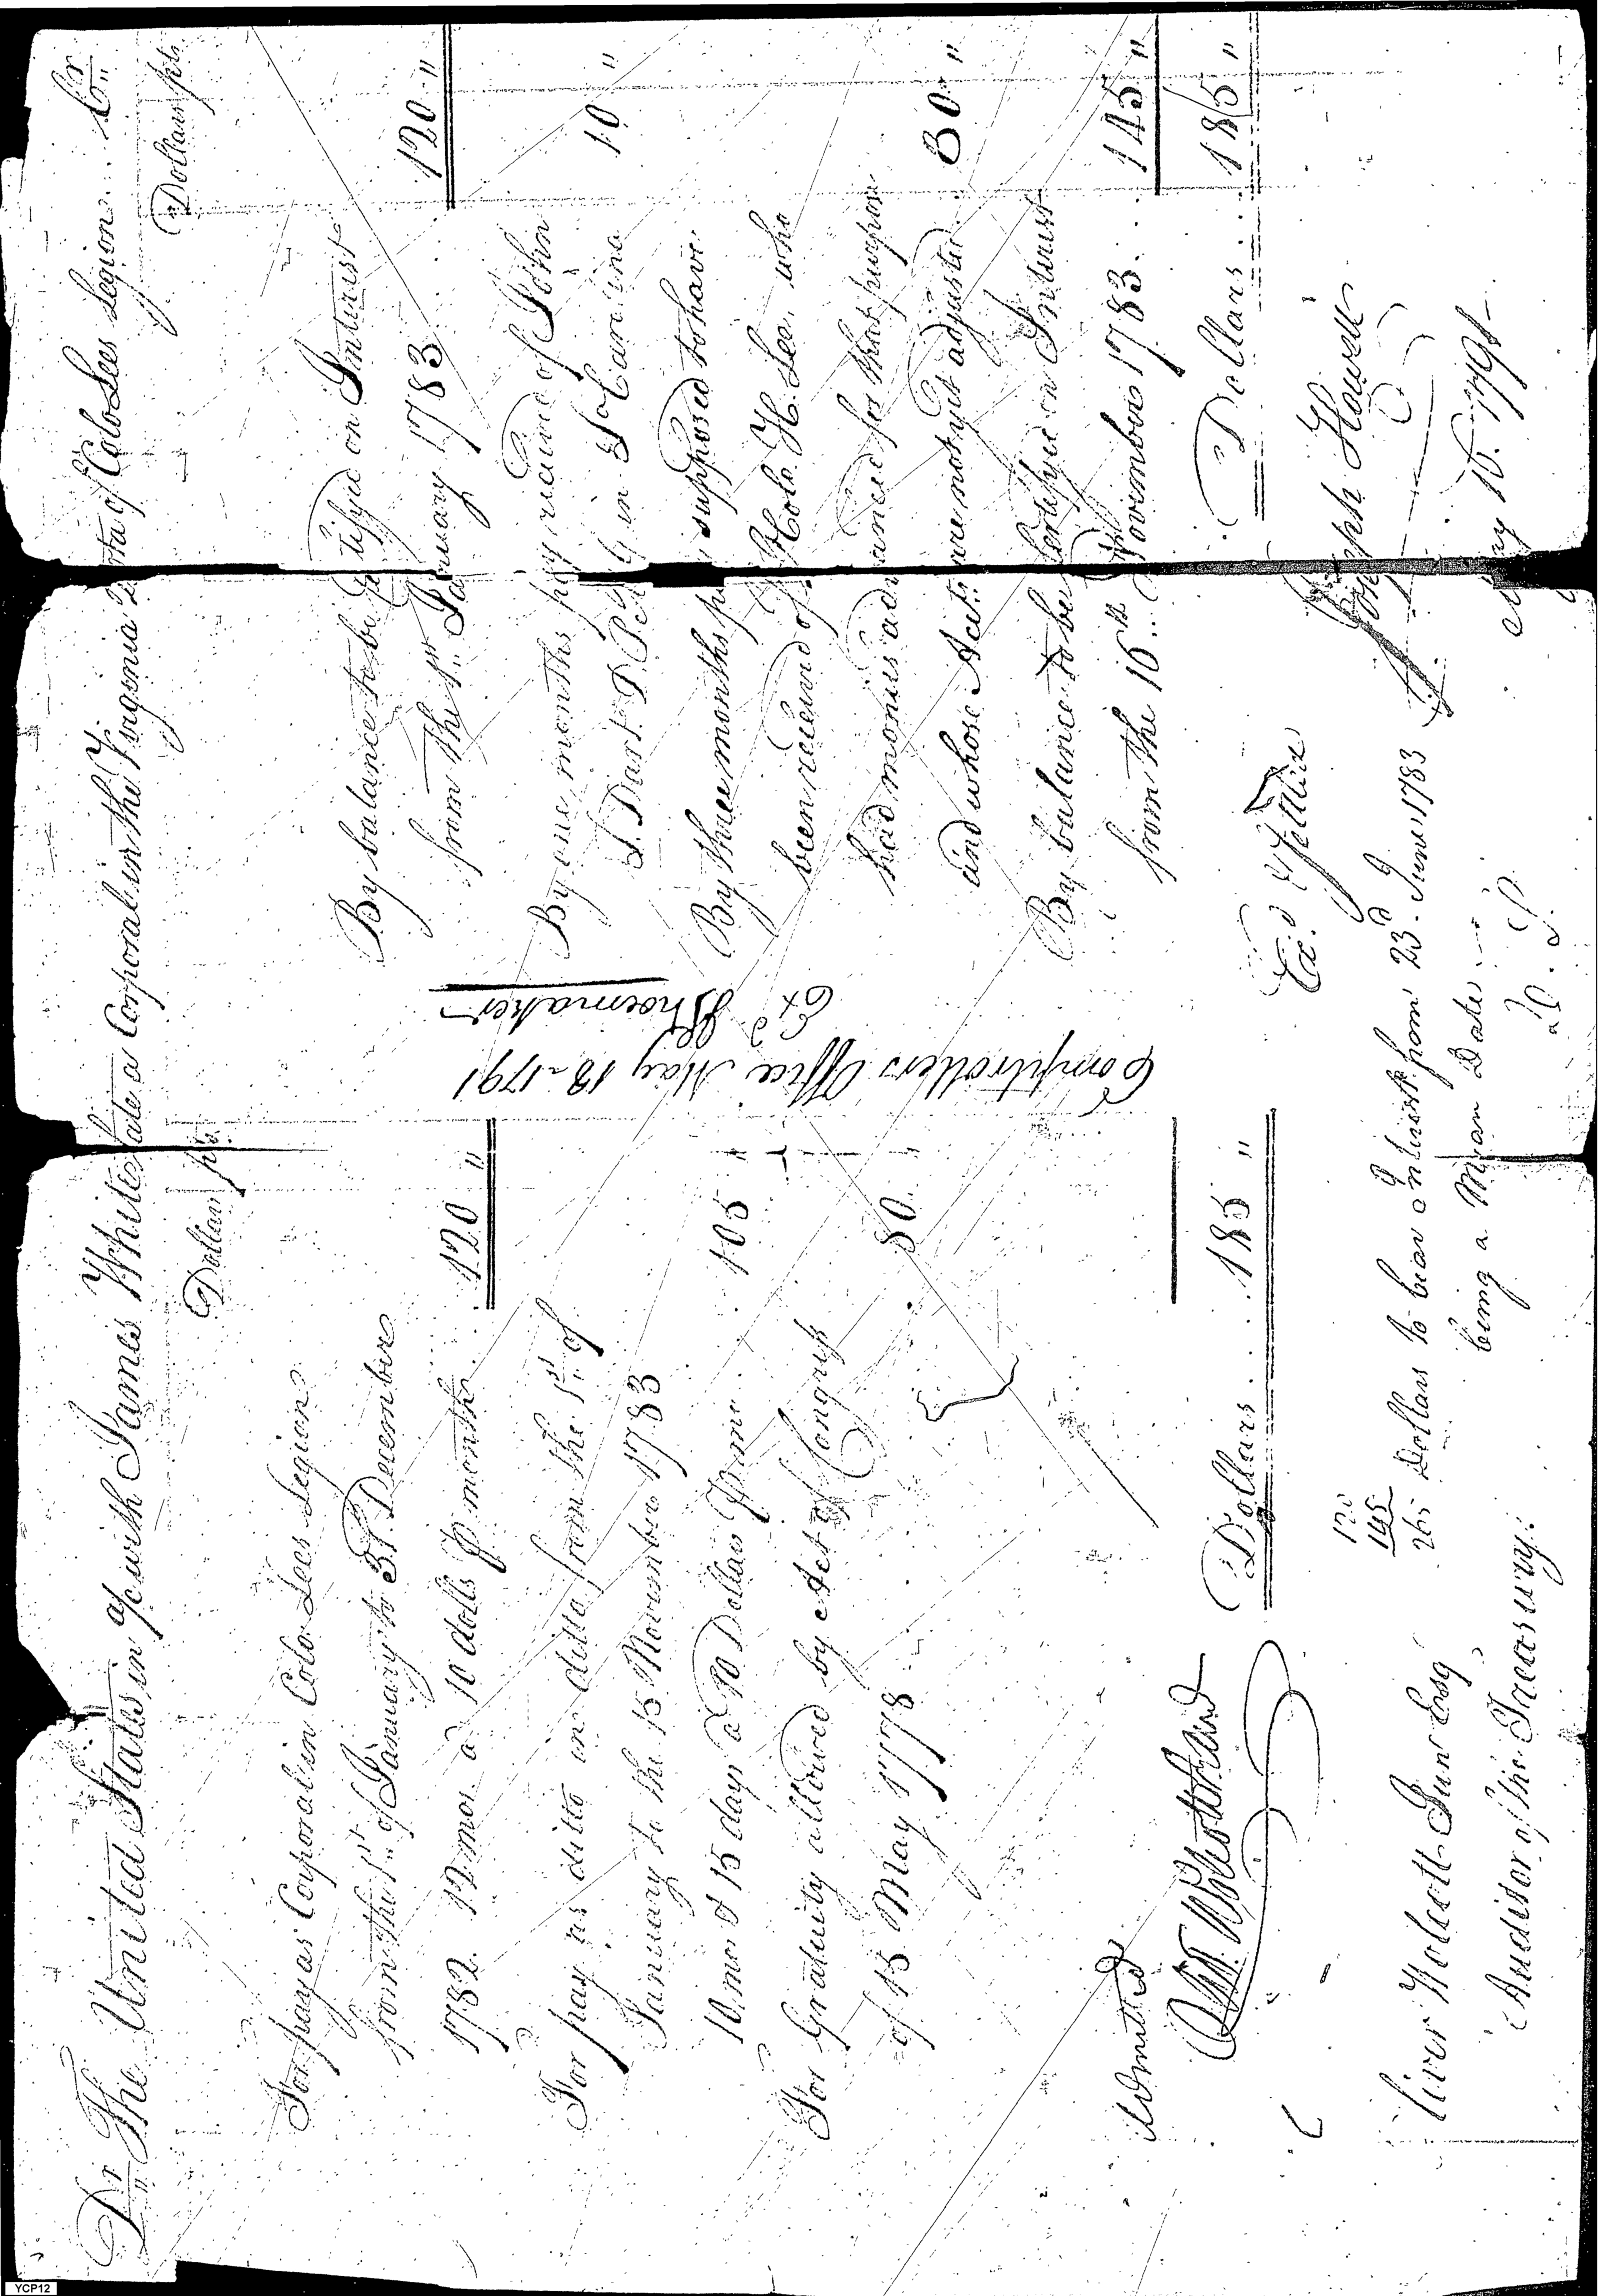 Dr The United States in a/c with James White late a Corporal in the Virginia of Colo Lees Legion Cr
Dollars pts
For pay as Corporal in Colo Lees Legion
from the 1st of January to 31 December
1782 12 mos a 10 dolls P month 120 "
For pay as ditto in ditto from the 1st of
January to the 15 November 1783
10 mos & 15 days a 10 Dollars P mo 105
For Gratuity allowed by Act of Congress
of 15 May 1778 80
Dollars 185 "
Admitted
Oliver Wolcott Jun Esq
Auditor of the Treasury
Dollars pts
By balance to be Certifyed on Interest
from the 1st January 1783 120 "
By one months pay received of John
S. Dart D. P. in So Carolina 10 "
By three months pay supposed to have
been received of Colo. H. Lee, who
had monies advanced for that purpose
and whose Accts are not yet adjusted 30 "
By balance to be Certifyed on Interest
from the 16th November 1783 145 "
Dollars 185 "
Joseph Howell
May 16. 1791
Comptrollers Office May 18 1791
Exd Shoemaker
Exd
120
145
265 Dollars to bear Interest from 23d June 1783
being a Mean Date